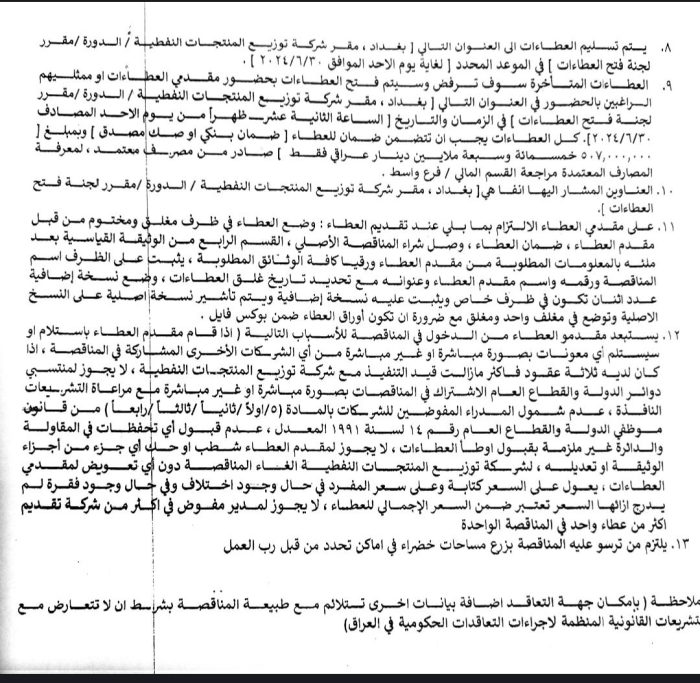 ٨. يتم تسليم العطاءات الى العنوان التالي [ بغداد ، مقر شركة توزيع المنتجات النفطية / الدورة /مقرر
لجنة فتح العطاءات ] في الموعد المحدد [ لغاية يوم الاحد الموافق ٢٠٢٤/٦/٣٠ ] .
٩. العطاءات المتأخرة سوف ترفض وسيتم فتح العطاءات بحضور مقدمي العطاءات او ممثليهم
الراغبين بالحضور في العنوان التالي [ بغداد ، مقر شركة توزيع المنتجات النفطية / الدورة /مقرر
لجنة فتح العطاءات ] في الزمان والتاريخ [ الساعة الثانية عشر ظهراً من يوم الاحد المصادف
٢٠٢٤/٦/٣٠]. كل العطاءات يجب ان تتضمن ضمان للعطاء [ ضمان بنكي او صك مصدق ] وبمبلغ [
٥٠٧,٠٠٠,٠٠٠ خمسمائة وسبعة ملايين دينار عراقي فقط ] صادر من مصرف معتمد ، لمعرفة
المصارف المعتمدة مراجعة القسم المالي / فرع واسط .
١٠. العناوين المشار اليها انفا هي[ بغداد ، مقر شركة توزيع المنتجات النفطية / الدورة /مقرر لجنة فتح
العطاءات ].
١١. على مقدمي العطاء الالتزام بما يلي عند تقديم العطاء : وضع العطاء في ظرف مغلق ومختوم من قبل
مقدم العطاء ، ضمان العطاء ، وصل شراء المناقصة الأصلي ، القسم الرابع من الوثيقة القياسية بعد
ملئه بالمعلومات المطلوبة من مقدم العطاء ورقيا كافة الوثائق المطلوبة ، يثبت على الظرف اسم
المناقصة ورقمه واسم مقدم العطاء وعنوانه مع تحديد تاريخ غلق العطاءات ، وضع نسخة إضافية
عدد اثنان تكون في ظرف خاص ويثبت عليه نسخة إضافية ويتم تأشير نسخة اصلية على النسخ
الاصلية وتوضع في مغلف واحد ومغلق مع ضرورة ان تكون أوراق العطاء ضمن بوكس فايل .
١٢. يستبعد مقدمو العطاء من الدخول في المناقصة للأسباب التالية ( اذا قام مقدم العطاء باستلام او
سيستلم أي معونات بصورة مباشرة او غير مباشرة من أي الشركات الأخرى المشاركة في المناقصة ، اذا
كان لديه ثلاثة عقود فاكثر مازالت قيد التنفيذ مع شركة توزيع المنتجات النفطية ، لا يجوز لمنتسبي
دوائر الدولة والقطاع العام الاشتراك في المناقصات بصورة مباشرة او غير مباشرة مع مراعاة التشريعات
النافذة ، عدم شمول المدراء المفوضين للشركات بالمادة (٥/اولاً /ثانياً /ثالثاً /رابعاً ) من قانون
موظفي الدولة والقطاع العام رقم ١٤ لسنة ١٩٩١ المعدل ، عدم قبول أي تحفظات في المقاولة
والدائرة غير ملزمة بقبول اوطأ العطاءات ، لا يجوز لمقدم العطاء شطب او حك أي جزء من أجزاء
الوثيقة او تعديله ، لشركة توزيع المنتجات النفطية الغاء المناقصة دون أي تعويض لمقدمي
العطاءات ، يعول على السعر كتابة وعلى سعر المفرد في حال وجود اختلاف وفي حال وجود فقرة لم
يدرج ازائها السعر تعتبر ضمن السعر الإجمالي للعطاء ، لا يجوز لمدير مفوض في اكثر من شركة تقديم
اكثر من عطاء واحد في المناقصة الواحدة
١٣. يلتزم من ترسو عليه المناقصة بزرع مساحات خضراء في اماكن تحدد من قبل رب العمل
ملاحظة ( بإمكان جهة التعاقد اضافة بيانات اخرى تستلائم مع طبيعة المناقصة بشرط ان لا تتعارض مع
تشريعات القانونية المنظمة لاجراءات التعاقدات الحكومية في العراق)